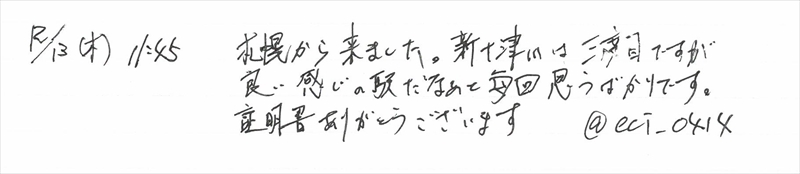 12/13(木) 11:45 札幌から来ました。新十津川は三度目ですが
良い感じの駅だなあと毎回思うばかりです。
証明書ありがとうございます @eci_0414